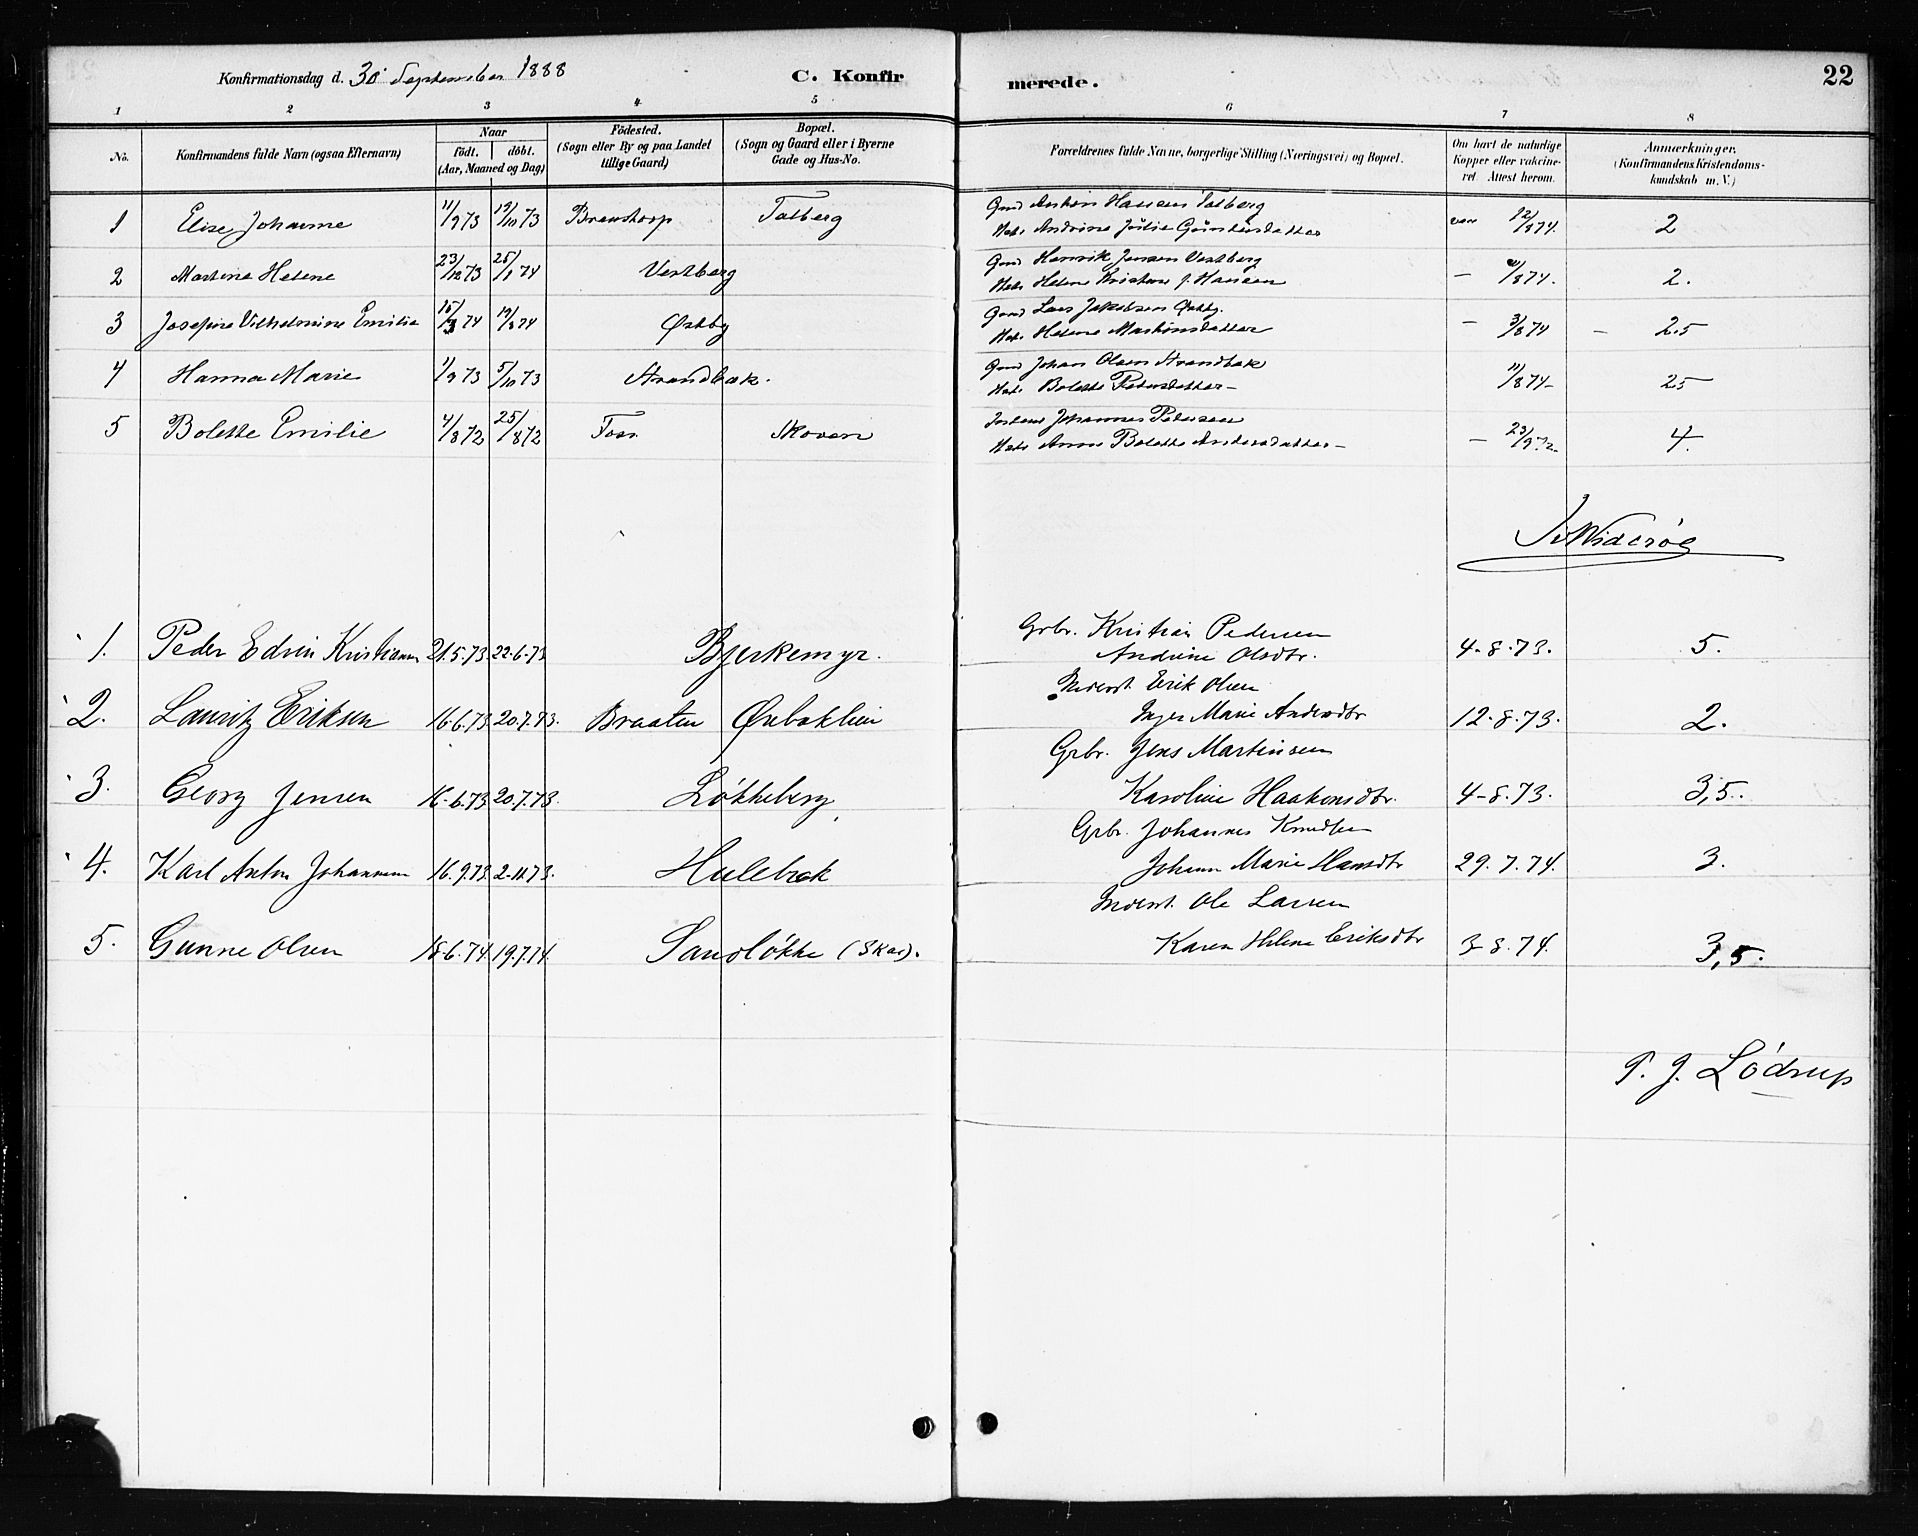 Konfirmationsdag d. 30 September 1888 C. Konfirmerede. 22
1 2 3 4 5 6 7 8
No. Konfirmandens fulde Navn (ogsaa Efternavn) Naar födt. döbt. (Aar, Maaned og Dag) Födested. (Sogn eller By og paa Landet tillige Gaard) Bopæl. (Sogn og Gaard eller i Byerne Gade og Hus-No. Forældrenes fulde Navne, borgerlige Stilling (Næringsvei) og Bopæl. Om havt de naturlige Kopper eller vakcineret. Attest herom. Anmærkninger. (Konfirmandens Kristendomskundskab m. V.)
Gmd Anton Hansen Talberg
1 Elise Johanne 11/9 73 19/10 73 Talberg Hst. Andrine Julie vac 12/8 74. 2
Gmd Henrik Jensen Vestberg
2 Martine Helene 23/12 73 25/1 74 Vestberg Hst. Helene Kristine f. Hansen — /8 74. 2.
Gmd Lars Jakobsen Østby.
3 Josefine Vilhelmine Emilie 15/3 74 19/ 74 Østby Hst. Helene Martinsdatter — 3/8 74 — 2.5
Gmd Johan Olsen Strandbæk
4 Hanna Marie 1/9 73 5/10 73 Strandbæk. Hst. Bolette Petersdatter — 11/8 74 — 25
Johannes Petersen
5 Bolette Emilie 4/8 72 25/8 72 Foss Skoven Hst. Anne Bolette Andersdatter — — 23/9 72 4.
Widerøe
Grbr. Kristian Pedersen
1. Peder Edvin Kristiansen 21.5.73 22-6-73 Bjerkemyr. Andrine Olsdtr. 4-8.73. 5.
Inderst. Erik Olsen
2. Lauritz Eriksen 16.6.73 20.7.73. Braaten Øxbæklien Inger Marie Andersdtr 12-8.73. 2.
Grbr. Jens Martinsen
3. Georg Jensen 16-6.73 20.7.73. Løkkeberg. Karoline Haakonsdtr. 4-8.73. 3,5.
Grbr. Johannes Knudsen
4. Karl Anton Johannesen 16.9.73 2-11.73. Hulebæk Johanne Marie Hansdtr 29.7.74. 3.
Inderst. Ole Larsen
5. Gunne Olsen 18-6.74. 19.7.74. Sandløkke (Skar). Karen Helene Eriksdtr 3-8.74. 3,5.
P. J. Lødrup